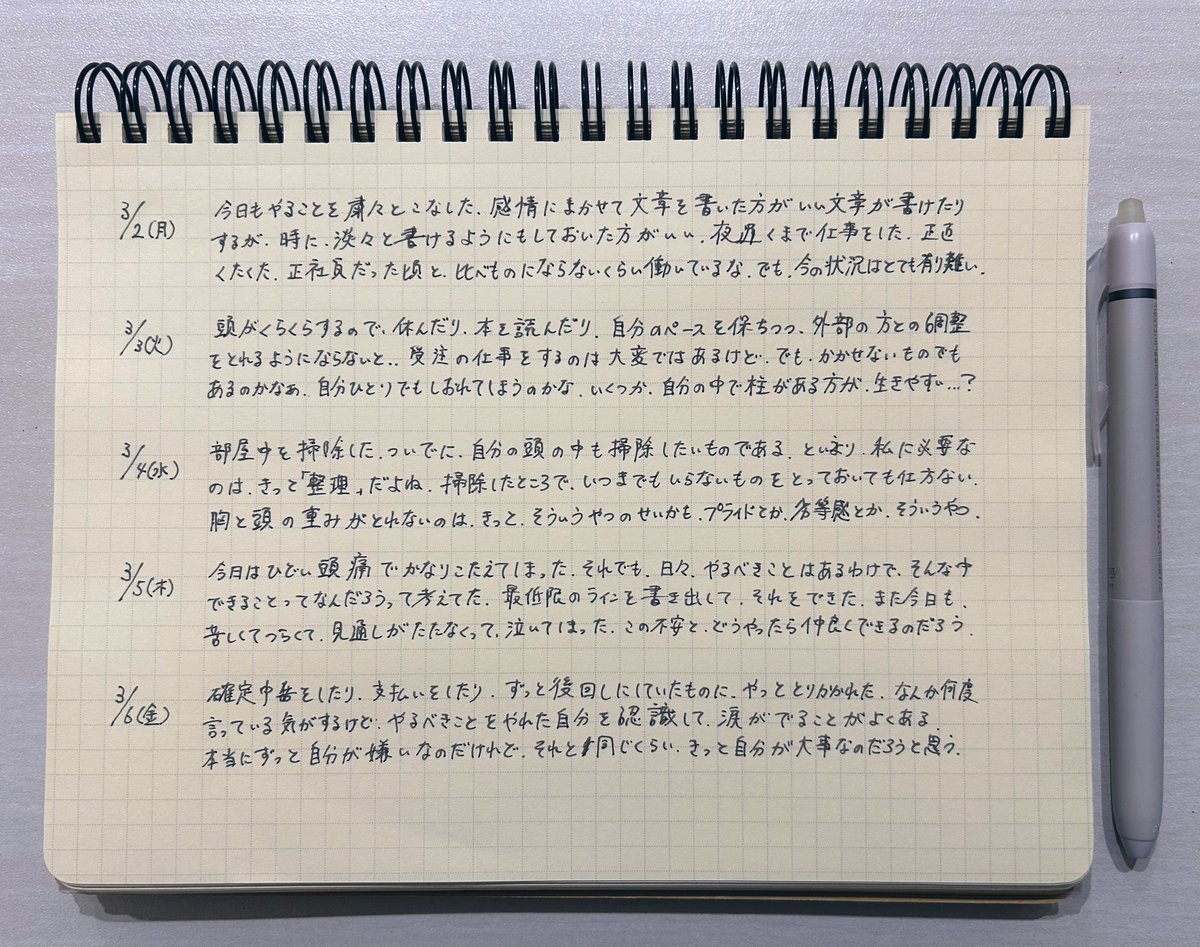 3/2(月) 今日もやることを粛々とこなした。感情にまかせて文章を書いた方がいい文章が書けたり
するが、時に、淡々と書けるようにもしておいた方がいい。夜遅くまで仕事をした。正直
くたくた。正社員だった頃と、比べものにならないくらい働いているな。でも、今の状況はとても有り難い。
3/3(火) 頭がくらくらするので、休んだり、本を読んだり、自分のペースを保ちつつ、外部の方との調整
をとれるようにならないと..受注の仕事をするのは大変ではあるけど、でも、かかせないものでも
あるのかなぁ。自分ひとりでもしおれてしまうのかな。いくつか、自分の中で柱がある方が、生きやすい...?
3/4(水) 部屋中を掃除した。ついでに、自分の頭の中も掃除したいものである。というより、私に必要な
のは、きっと「整理」だよね。掃除したところで、いつまでもいらないものをとっておいても仕方ない。
胸と頭の重みがとれないのは、きっと、そういうやつのせいかも。プライドとか、劣等感とか、そういうやつ。
3/5(木) 今日はひどい頭痛でかなりこたえてしまった。それでも、日々、やるべきことはあるわけで、そんな中
できることってなんだろうって考えてた。最低限のラインを書き出して、それをできた。また今日も、
苦しくてつらくて、見通しがたたなくって、泣いてしまった。この不安と、どうやったら仲良くできるのだろう。
3/6(金) 確定申告をしたり、支払いをしたり、ずっと後回しにしていたものに、やっととりかかれた。なんか何度
言っている気がするけど、やるべきことをやれた自分を認識して、涙がでることがよくある。
本当にずっと自分が嫌いなのだけれど、それと同じくらい、きっと自分が大事なのだろうと思う。